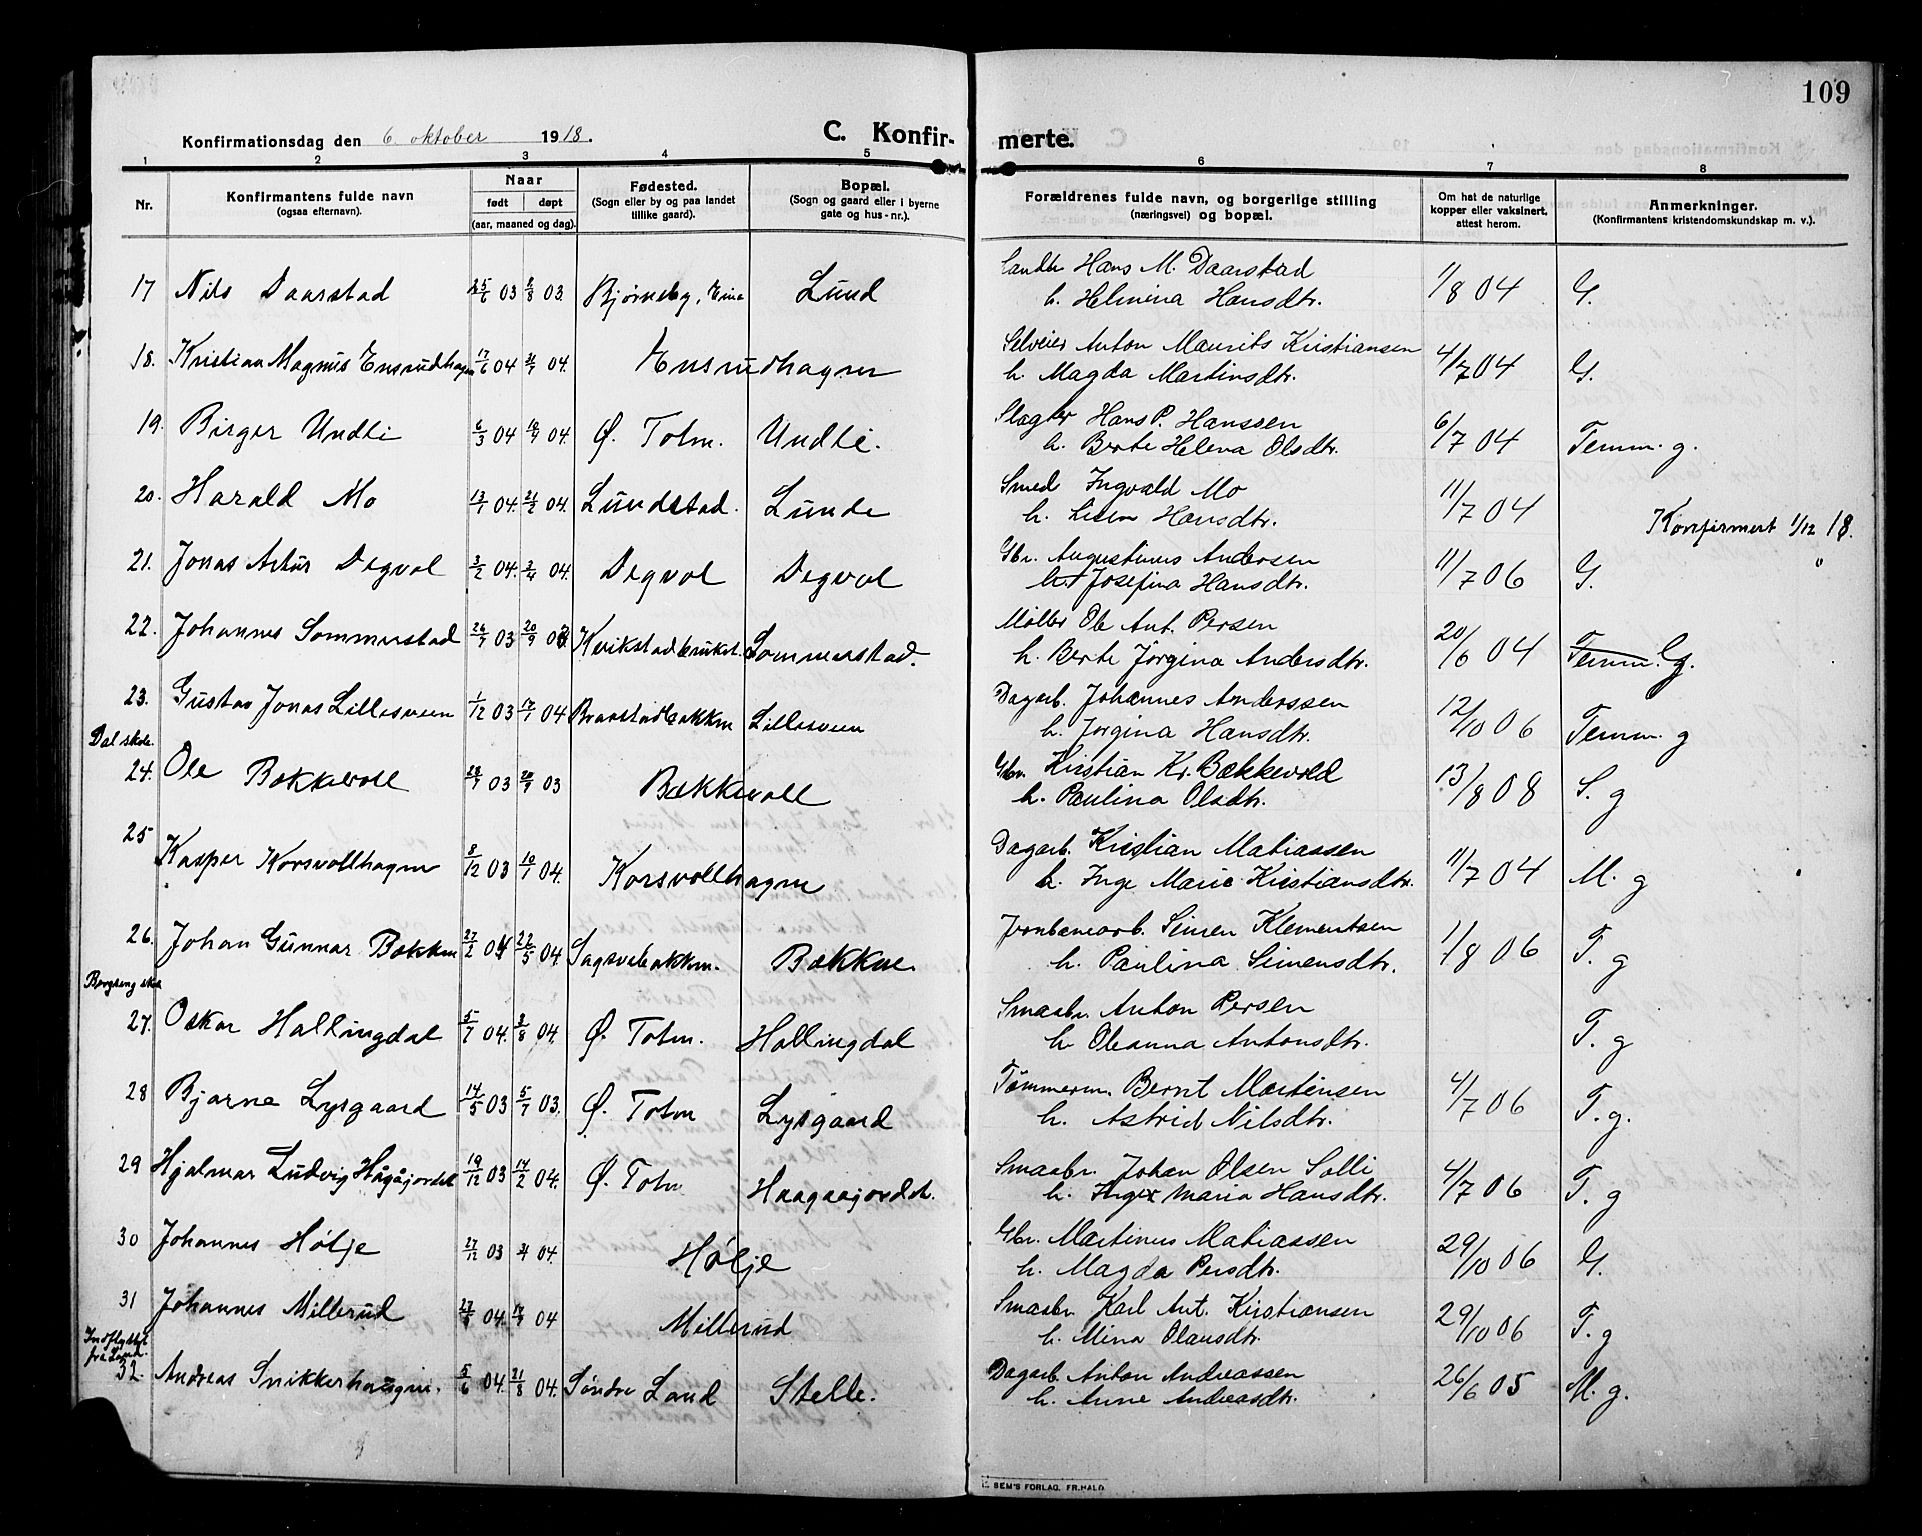 109
Konfirmationsdag den 6 oktober 1918.
C. Konfir- merte.
1 2 3 4 5 6 7 8
Nr.
Konfirmantens fulde navn
(ogsaa efternavn).
Naar
født døpt
(aar, maaned og dag).
Fødested.
(Sogn eller by og paa landet
tillike gaard).
Bopæl.
(Sogn og gaard eller i byerne
gate og hus-nr.).
Forældrenes fulde navn, og borgerlige stilling
(næringsvei) og bopæl.
Om hat de naturlige
kopper eller vaksinert,
attest herom.
Anmerkninger.
(Konfirmantens kristendomskundskap m. v.).
17 Nils Daarstad 25/6 03 2/8 03. Bjørneby, Eina Lund Landbr Hans M. Daarstad 1/8 04 G.
h. Helmina Hansdtr.
18. Kristian Magnus Ensrudhagen 17/6 04 31/7 04. Ensrudhagen Selveier Anton Maurits Kristiansen 4/7 04 G.
h. Magda Martinsdtr.
19. Birger Undli 6/3 04 04. Ø. Toten. Undli. Slagter Hans P. Hanssen 6/7 04 Temm. g.
h. Berte Helena Olsdtr.
20. Harald Mo 13/1 04. 21/2 04. Lundstad. Lunde Smed Ingvald Mo 11/7 04 Konfirmert 1/12 18.
h. Lisen Hansdtr.
21. Jonas Artur Degvol 3/2 04. 3/4 04. Degvol Degvol Gbr. Augustinus Andersen 11/7 06 G. "
h. Josefina Hansdtr.
22. Johannes Sommerstad 26/7 03 20/9 03 Kvikstadbruket. Sommerstad. Møller Ole Ant. Persen 20/6 04 Temm. G.
h. Berte Jørgina Andersdtr.
23. Gustav Jonas Lillesveen 1/12 03 17/1 04 Braastadbakken Lillesveen Dagarb. Johannes Anderssen 12/10 06 Temm. g
h. Jørgina Hansdtr.
Dal skole.
24. Ole Bækkevoll 28/7 03 20/9 03 Bækkevoll Gbr. Kristian Kr. Bækkevold 13/8 08 S. g
h. Paulina Olsdtr.
25 Kasper Korsvollhagen 8/12 03 10/1 04. Korsvollhagen Dagarb. Kristian Matiassen 11/7 04 M. g
h. Inge Marie Kristiansdtr.
26. Johan Gunnar Bækken 27/2 04 22/5 04. Sagsvebakken. Bækkne. Jernbanearb. Simen Klementsen 1/8 06 T. g
h. Paulina Simensdtr.
Bergseng skole
27. Oskar Hallingdal 5/7 04. 3/8 04. Ø. Toten. Hallingdal Smaabr. Anton Persen T. g
h. Oleanna Antonsdtr.
28 Bjarne Lysgaard 14/5 03 5/7 03. Ø. Toten Lysgaard Tømmerm. Bernt Martinsen 4/7 06 T. g.
h. Astrid Nilsdtr.
29 Hjalmar Ludvig Hågåjordet 19/12 03 14/2 04. Ø. Toten Haagaajordet. Smaabr. Johan Olsen Solli 4/7 06 T. g
h. Inger Maria Hansdtr.
30 Johannes Hølje 27/12 03 04. Hølje Gbr. Martinus Matiassen 29/10 06 G.
h. Magda Persdtr.
31 Johannes Millerud 04. 04 Millerud Smaabr Karl Ant. Kristiansen 29/10 06 T. g
h. Mina Olausdtr.
Indflyttet
fra Land.
32. Andreas Snikkerhaugen. 5/6 04. 21/8 04. Søndre Land Stelle. Dagarb. Anton Andreassen 26/6 05 M. g.
h. Anne Andreasdtr.
SEM'S FORLAG, FR.HALD.